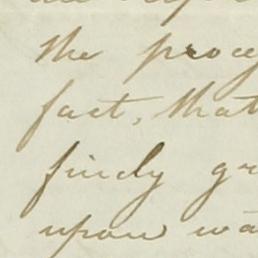 the proce
fact, that
finely gr
upon wa